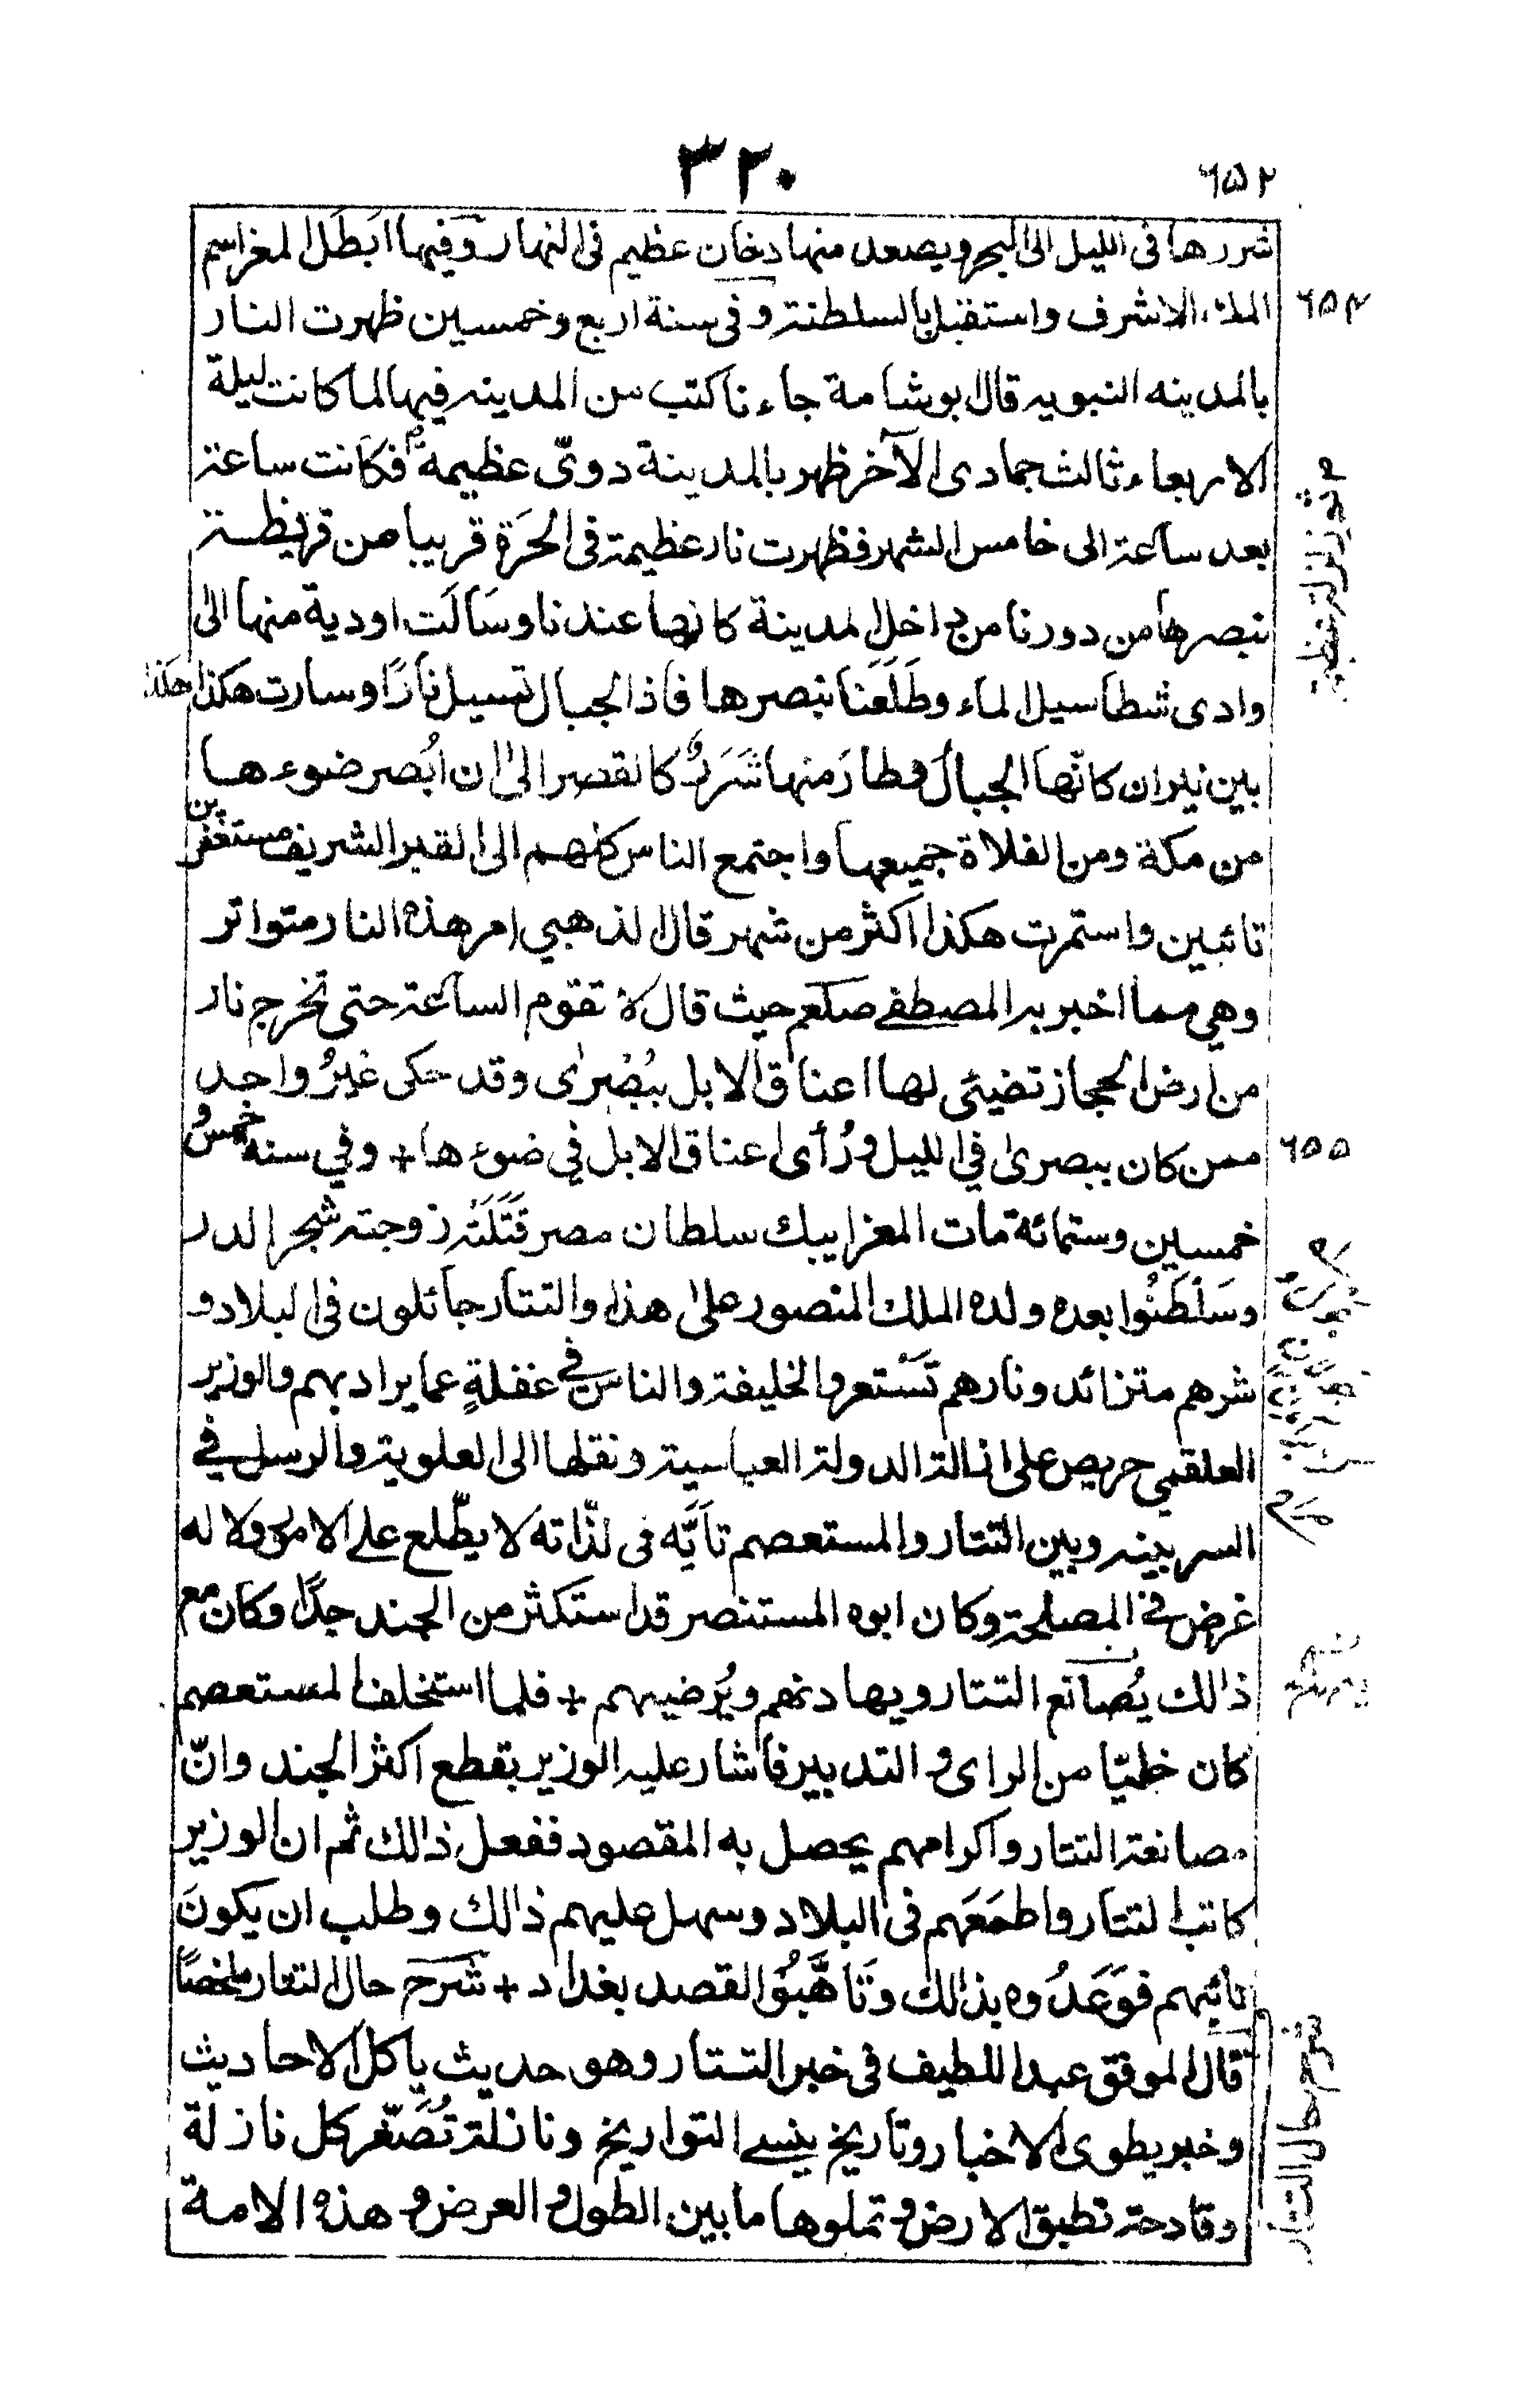 ٣٢٠
٦٥٢
شررها فى الليل الى البحر ويصعد منها دخان عظيم فى النهار وفيها ابطل المغر اسم
الملك الاشرف واستقبل بالسلطنة وفى سنة اربع وخمسين ظهرت النار
٦٥٤
بالمدينه النبويه قال ابو شامة جاءنا كتب من المدينه فيها لما كانت ليلة
الاربعاء ثالث جمادى الآخر ظهر بالمدينة دوىّ عظيمة فكانت ساعة
بعد ساعة الى خامس الشهر فظهرت نار عظيمة فى الحَرَة قريبا من قريظة
نبصرها من دورنا من داخل المدينة كانها عندنا وسَالَت اودية منها الى
وادى شطا سيل الماء وطَلَعْنا نبصرها فاذا الجبال تسيل نارًا وسارت هكذا هكذا
بين نيران كانّها الجبالَ وطارَ منها شَرَرٌ كالقصر الىٰ ان ابُصر ضوءها
من مكة ومن الفلاة جميعها واجتمع الناس كلهم الى القبر الشريف مستغفرين
تائبين واستمرت هكذا اكثر من شهر قال الذهبي امر هذه النار متواتر
وهي مما اخبر به المصطفے صلعم حيث قال لا تقوم الساعة حتى تخرج نار
من ارض الحجاز تضيئى لها اعناق الابل ببُصْرىٰ وقد حكى غيرُ واحد
ممن كان ببصرىٰ في الليل ورُأى اعناق الابل في ضوءها + وفي سنه خمس و
٦٥٥
خمسين وستمائة مات المعز ايبك سلطان مصر قَتَلَتْه زوجته شجر الدر
وسَلْطَنُوا بعده ولده الملك المنصور علىٰ هذا والتتار جائلون فى البلاد و
شرهم متزائد ونارهم تَسْتعر والخليفة والناس في غفلةٍ عما يراد بهم والوزير
العلقمي حريص على ازالة الدولة العباسية ونقلها الى العلوية والرسل في
السر بينه وبين التتار والمستعصم تَائَه فى لذّاته لا يطّلع علے الامور ولا له
غرض في المصلحة وكان ابوه المستنصر قد استكثر من الجند جدًا وكان مع
ذالك يُصانع التتار ويهادنهم ويُرضيهم + فلما استخلف المستعصم
كان خليّا من الراى و التدبير فاشار عليه الوزير بقطع اكثر الجند وانّ
مصانعة التتار واكرامهم يحصل به المقصود ففعل ذالك ثم ان الوزير
كاتب التتار واطمَعَهم فى البلاد وسهل عليهم ذالك وطلب ان يكونَ
نائبهم فوَعَدُوه بذالك وَتَاهَّبُوْا لقصد بغداد + شرح حال التتار ملخصًا
شرح حال التتار
قال الموفق عبد اللطيف فى خبر التتار وهو حديث ياكل الاحاديث
وخبر يطوى الاخبار وتاريخ ينسے التواريخ ونازلة تُصَغّر كل نازلة
وفادحة تطبق الارض و تملوها ما بين الطول و العرض و هذه الامة